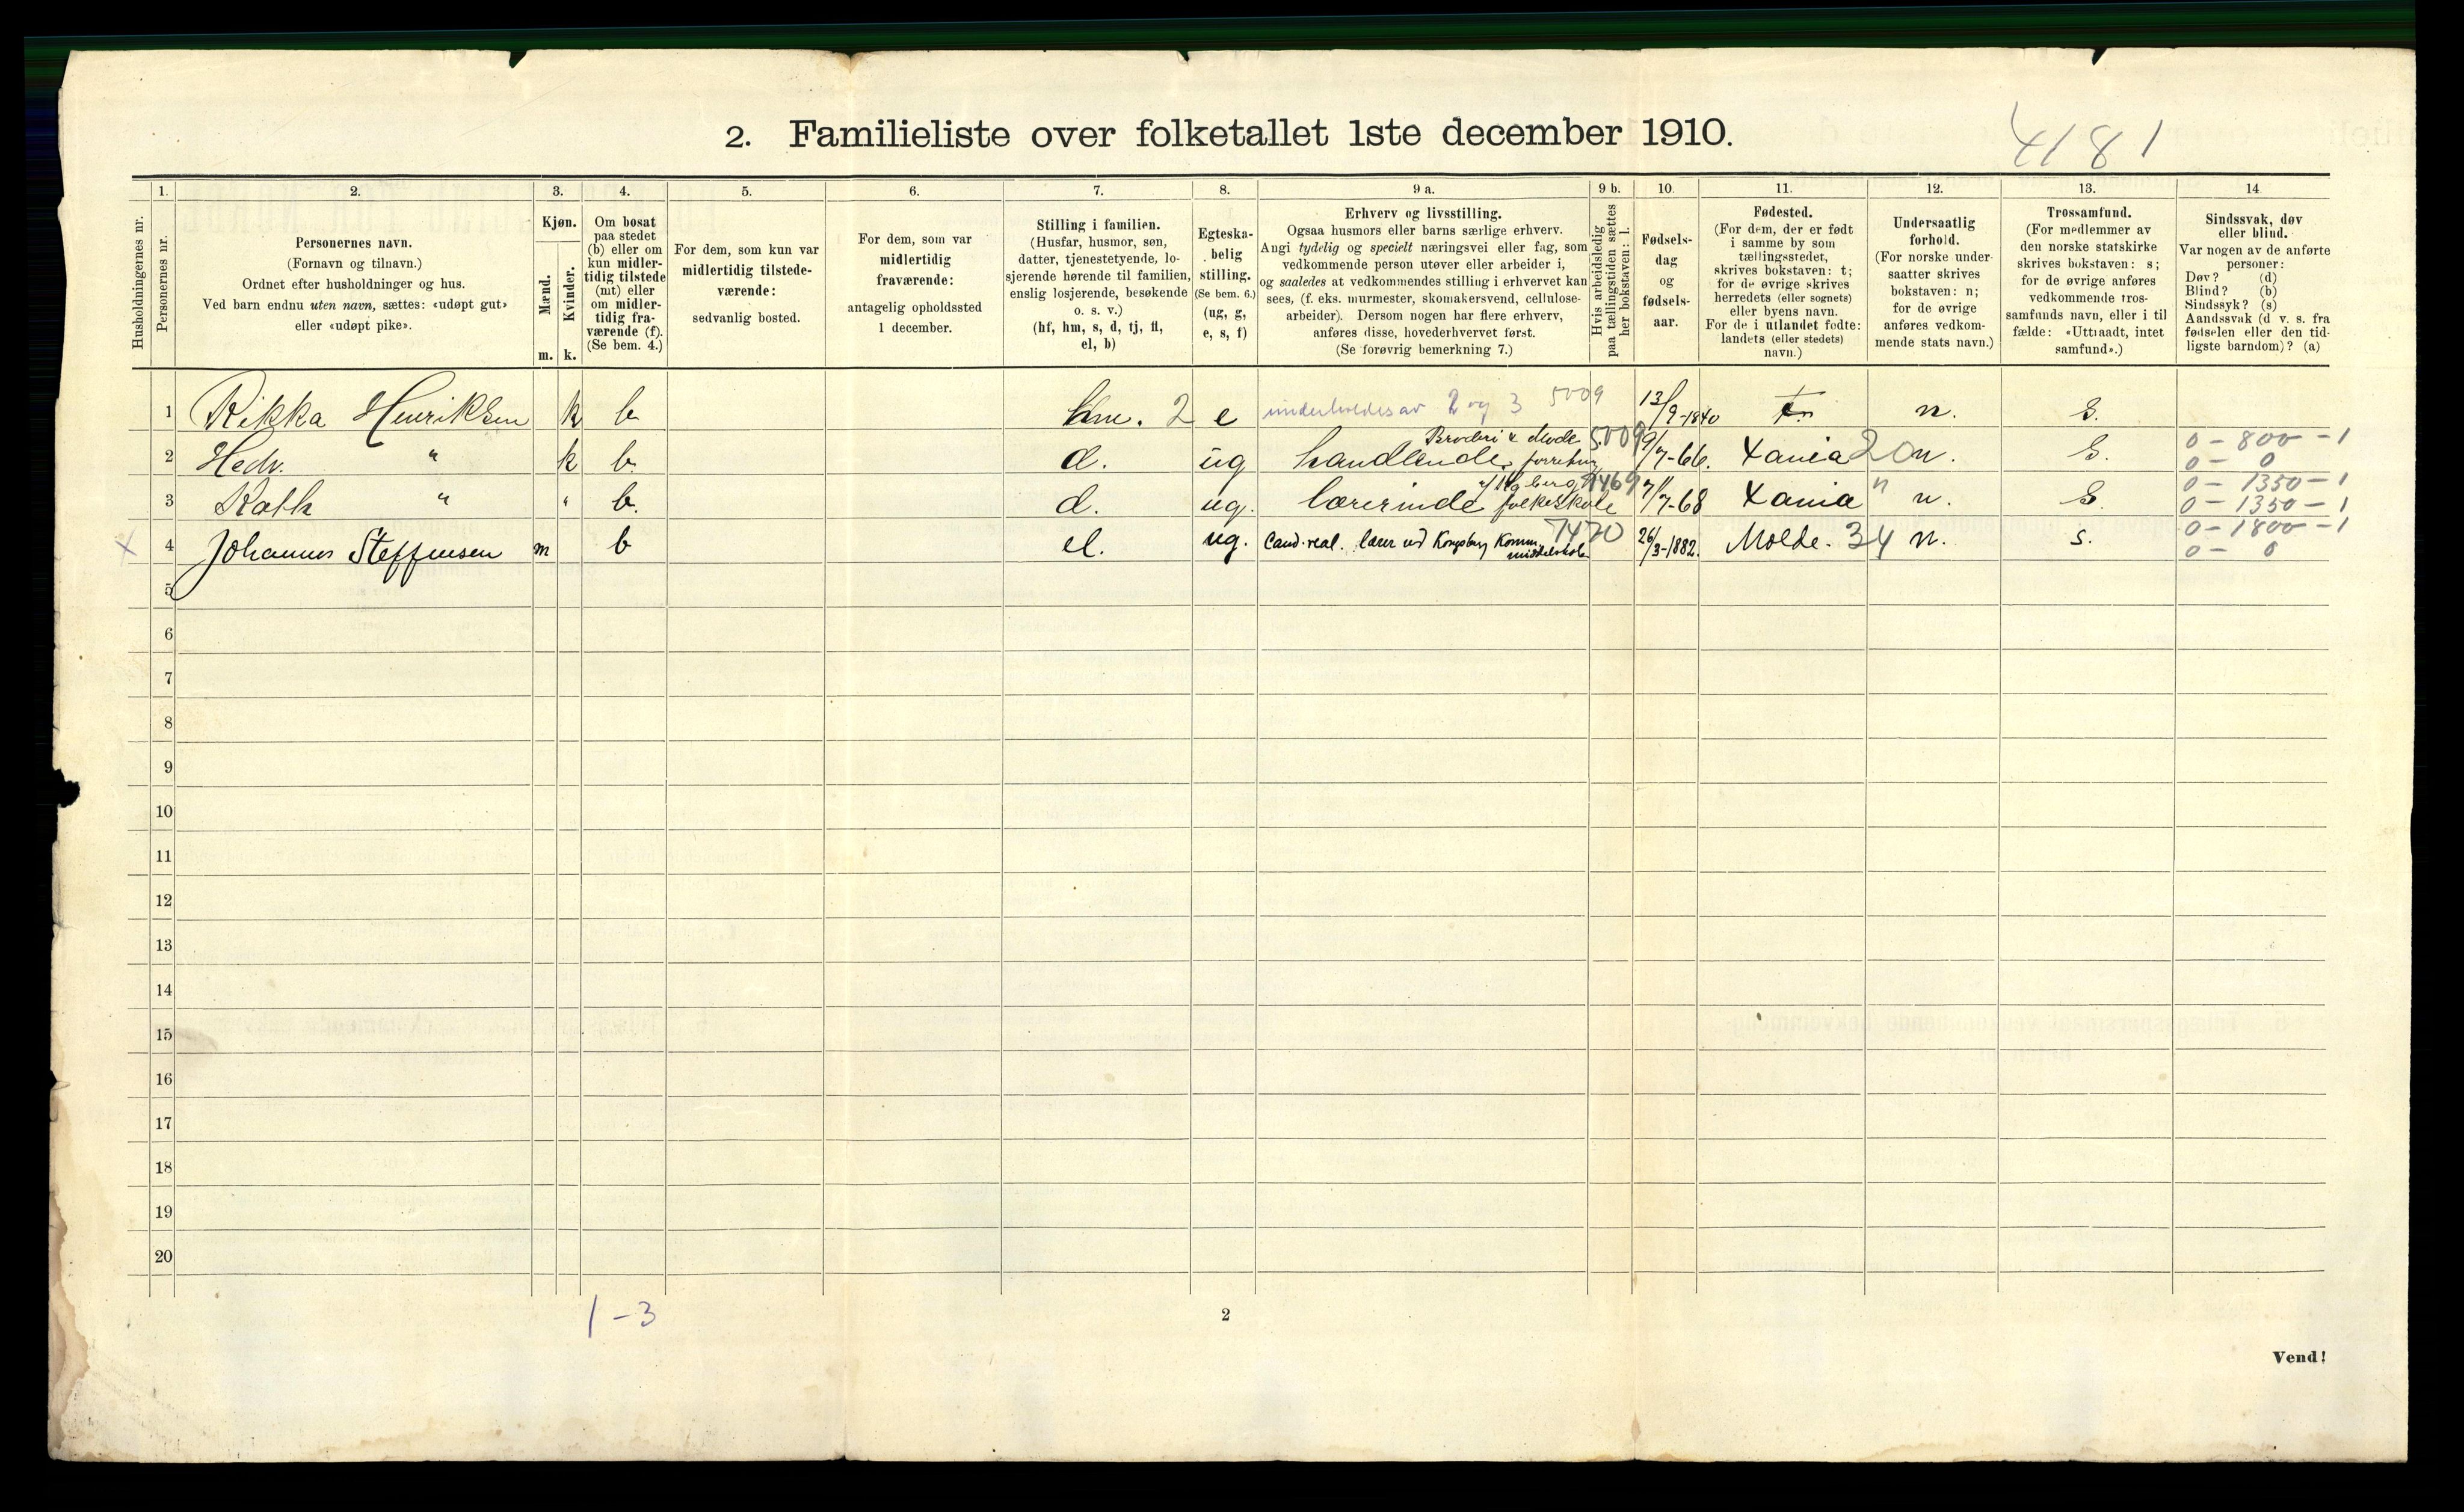 2. Familieliste over folketallet 1ste december 1910.
4181
Husholdningernes nr.
1.
Personernes nr.
2.
Personernes navn.
(Fornavn og tilnavn.)
Ordnet efter husholdninger og hus.
Ved barn endnu uten navn, sættes: «udøpt gut»
eller «udøpt pike».
3.
Kjøn.
Mænd.
Kvinder.
m. k.
4.
Om bosat
paa stedet
(b) eller om
kun midler-
tidig tilstede
(mt) eller
om midler-
tidig fra-
værende (f).
(Se bem. 4.)
5.
For dem, som kun var
midlertidig tilstede-
værende:
sedvanlig bosted.
6.
For dem, som var
midlertidig
fraværende:
antagelig opholdssted
1 december.
7.
Stilling i familien.
(Husfar, husmor, søn,
datter, tjenestetyende, lo-
sjerende hørende til familien,
enslig losjerende, besøkende
o. s. v.)
(hf, hm, s, d, tj, fl,
el, b)
8.
Egteska-
belig
stilling.
(Se bem. 6.)
(ug, g,
e, s, f)
9 a.
Erhverv og livsstilling.
Ogsaa husmors eller barns særlige erhverv.
Angi tydelig og specielt næringsvei eller fag, som
vedkommende person utøver eller arbeider i,
og saaledes at vedkommendes stilling i erhvervet kan
sees, (f. eks. murmester, skomakersvend, cellulose-
arbeider). Dersom nogen har flere erhverv,
anføres disse, hovederhvervet først.
(Se forøvrig bemerkning 7.)
9 b.
Hvis arbeidsledig
paa tællingstiden sættes
her bokstaven: l.
10.
Fødsels-
dag
og
fødsels-
aar.
11.
Fødested.
(For dem, der er født
i samme by som
tællingsstedet,
skrives bokstaven: t;
for de øvrige skrives
herredets (eller sognets)
eller byens navn.
For de i utlandet fødte:
landets (eller stedets)
navn.)
12.
Undersaatlig
forhold.
(For norske under-
saatter skrives
bokstaven: n;
for de øvrige
anføres vedkom-
mende stats navn.)
13.
Trossamfund.
(For medlemmer av
den norske statskirke
skrives bokstaven: s;
for de øvrige anføres
vedkommende tros-
samfunds navn, eller i til
fælde: «Uttraadt, intet
samfund».)
14
Sindssvak, døv
eller blind.
Var nogen av de anførte
personer:
Døv? (d)
Blind? (b)
Sindssyk? (s)
Aandssvak (d v. s. fra
fødselen eller den tid-
ligste barndom)? (a)
1 Rikka Henriksen k b hm. 2 e underholdes av 2 og 3 5009 13/9-1840 n. S.
Broderi & Mode 5009 0 - 800 - 1
2 Hedv. " k b. d. ug handlende, forretning 9/7-66. Xania 20 n. S. 0 - 0
7469 0 - 1350 - 1
3 Kath " " b. d. ug. lærerinde folkeskole 7/7-68 Xania " n. S. 0 - 1350 - 1
7470 0 - 1800 - 1
X 4 Johannes Steffensen m b el. ug. Cand. real. lærer ved Kongsberg Komm. middelskole 26/3-1882. Molde. 34 n. s. 0 - 0
5
6
7
8
9
10
11
12
13
14
15
16
17
18
19
20
1-3
2
Vend!